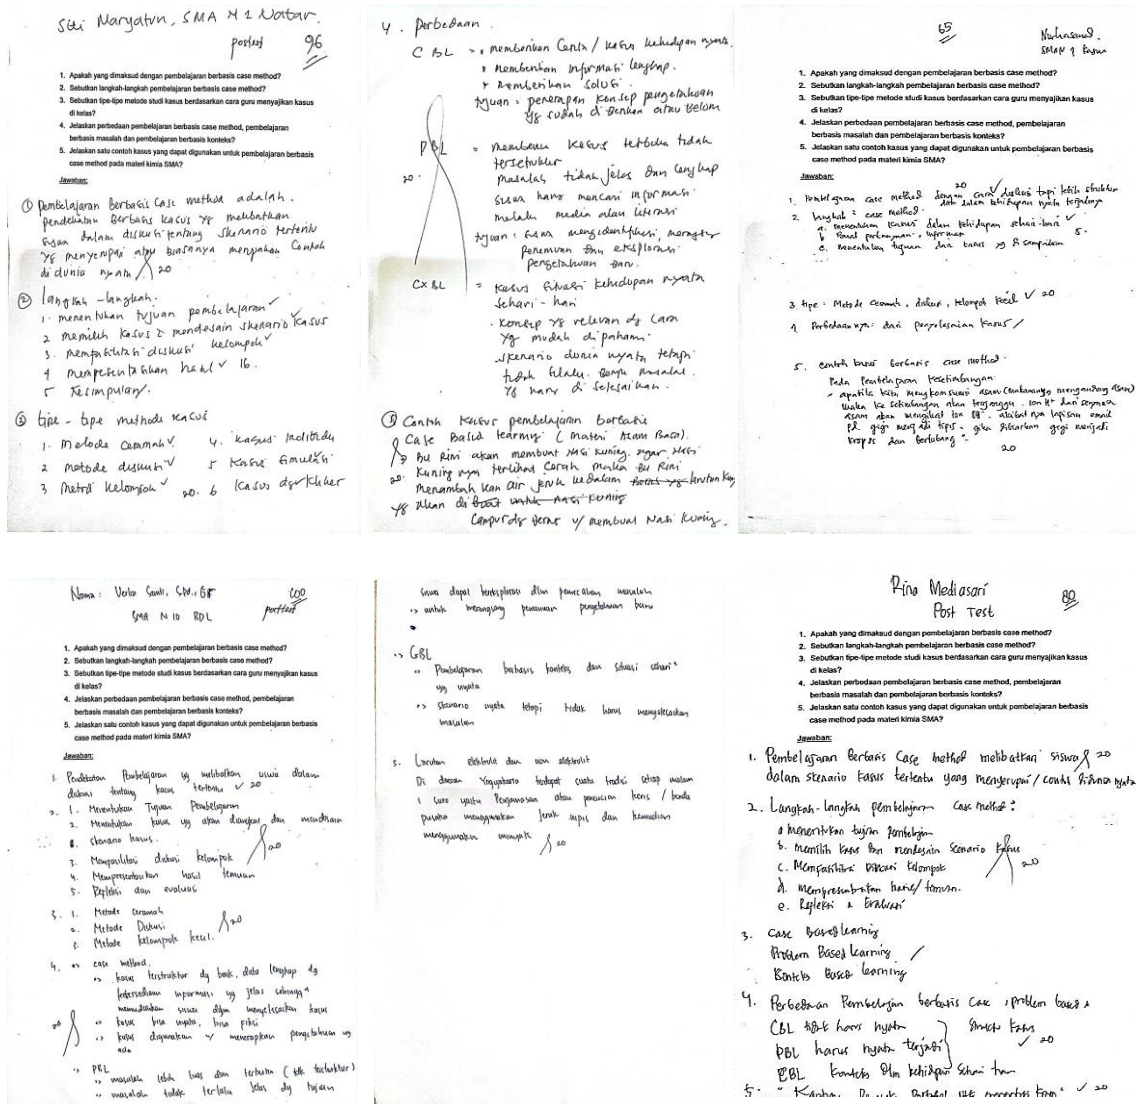 Siti Maryatun, SMA N 1 Natar.
posttest 96
1. Apakah yang dimaksud dengan pembelajaran berbasis case method?
2. Sebutkan langkah-langkah pembelajaran berbasis case method?
3. Sebutkan tipe-tipe metode studi kasus berdasarkan cara guru menyajikan kasus
di kelas?
4. Jelaskan perbedaan pembelajaran berbasis case method, pembelajaran
berbasis masalah dan pembelajaran berbasis konteks?
5. Jelaskan satu contoh kasus yang dapat digunakan untuk pembelajaran berbasis
case method pada materi kimia SMA?
Jawaban:
① Pembelajaran Berbasis Case method adalah.
pendekatan Berbasis kasus yg melibatkan
siswa dalam diskusi tentang skenario tertentu
yg menyerupai atau biasanya merupakan contoh
di dunia nyata 20
② langkah-langkah.
1. menentukan tujuan pembelajaran
2 memilih kasus & mendesain skenario kasus
3. memfasilitasi diskusi kelompok
4 mempresentasikan hasil 16.
5 Kesimpulan.
③ tipe-tipe methode kasus
1. Metode ceramah 4. kasus Individu
2 metode diskusi 5 kasus simulasi
3 kelompok 20. 6 kasus
4. Perbedaan.
CBL = memberikan Cerita / kasus kehidupan nyata.
memberikan informasi lengkap.
memberikan solusi.
tujuan = penerapan konsep pengetahuan
yg sudah di berikan atau belum
PBL = memberi kasus terbuka tidak
terstruktur
20. masalah tidak jelas dan lengkap
siswa harus mencari informasi
melalui media atau literasi
tujuan = siswa mengidentifikasi,
penemuan dan eksplorasi
pengetahuan baru.
CxBL = kasus situasi kehidupan nyata
sehari-hari
konsep yg relevan dg cara
yg mudah dipahami
skenario dunia nyata tetapi
tidak selalu berupa masalah
yg harus di selesaikan.
⑤ Contoh kasus pembelajaran berbasis
Case Based learning (materi Asam Basa).
Bu Rini akan membuat nasi kuning. agar nasi
20. kuning nya terlihat cerah maka Bu Rini
menambahkan air jeruk kedalam
yg akan
Campur dg beras u/ membuat Nasi kuning.
65
1. Apakah yang dimaksud dengan pembelajaran berbasis case method?
2. Sebutkan langkah-langkah pembelajaran berbasis case method?
3. Sebutkan tipe-tipe metode studi kasus berdasarkan cara guru menyajikan kasus
di kelas?
4. Jelaskan perbedaan pembelajaran berbasis case method, pembelajaran
berbasis masalah dan pembelajaran berbasis konteks?
5. Jelaskan satu contoh kasus yang dapat digunakan untuk pembelajaran berbasis
case method pada materi kimia SMA?
Jawaban:
20
1. Pembelajaran case method dengan cara diskusi tapi lebih struktur
dan dalam kehidupan nyata
2. langkah = case method.
a. menentukan kasus dalam kehidupan sehari-hari 5.
b. pertanyaan, informasi
c. menentukan tujuan dari kasus yg di sampaikan
3. tipe = Metode ceramah, diskusi, kelompok kecil 20
4 Perbedaannya: dari penyelesaian kasus
5. contoh kasus berbasis case method.
Pada Pembelajaran kesetimbangan
- apabila kita mengkonsumsi asam (makanan yg mengandung asam)
maka kesetimbangan akan terganggu. ion H+ dari senyawa
asam akan mengikat ion OH-, akibatnya lapisan email
pd gigi menjadi tipis - jika dibiarkan gigi menjadi
kropos dan berlubang
20
Nama: Verba Santi, S.Pd., Gr 100
SMA N 10 BDL posttest
1. Apakah yang dimaksud dengan pembelajaran berbasis case method?
2. Sebutkan langkah-langkah pembelajaran berbasis case method?
3. Sebutkan tipe-tipe metode studi kasus berdasarkan cara guru menyajikan kasus
di kelas?
4. Jelaskan perbedaan pembelajaran berbasis case method, pembelajaran
berbasis masalah dan pembelajaran berbasis konteks?
5. Jelaskan satu contoh kasus yang dapat digunakan untuk pembelajaran berbasis
case method pada materi kimia SMA?
Jawaban:
1. Pendekatan Pembelajaran yg melibatkan siswa dalam
diskusi tentang kasus tertentu 20
2. 1. Menentukan Tujuan Pembelajaran
2. Menentukan kasus yg akan diangkat dan mendesain
skenario kasus.
3. Memfasilitasi diskusi kelompok 20
4. Mempresentasikan hasil temuan
5. Refleksi dan evaluasi
3. 1. Metode ceramah
2. Metode Diskusi 20
3. Metode kelompok kecil.
4. case method.
kasus terstruktur dg baik, data lengkap dg
ketersediaan informasi yg jelas sehingga
memudahkan siswa dlm menyelesaikan kasus
20 kasus bisa nyata, bisa fiksi
kasus digunakan u/ menerapkan pengetahuan yg
ada
PBL
masalah lebih luas dan terbuka (tdk terstruktur)
masalah tidak terlalu jelas dg tujuan
siswa dapat bereksplorasi dlm pemecahan masalah
untuk merangsang penemuan pengetahuan baru
CBL
Pembelajaran berbasis konteks dan situasi sehari"
yg nyata
skenario nyata tetapi tidak harus menyelesaikan
masalah
5. Larutan elektrolit dan non elektrolit
Di daerah Yogyakarta terdapat suatu tradisi setiap malam
1 suro yaitu atau pencucian keris / benda
pusaka menggunakan jeruk nipis dan kemudian
menggunakan minyak 20
Rina Mediasari
Post Test 80
1. Apakah yang dimaksud dengan pembelajaran berbasis case method?
2. Sebutkan langkah-langkah pembelajaran berbasis case method?
3. Sebutkan tipe-tipe metode studi kasus berdasarkan cara guru menyajikan kasus
di kelas?
4. Jelaskan perbedaan pembelajaran berbasis case method, pembelajaran
berbasis masalah dan pembelajaran berbasis konteks?
5. Jelaskan satu contoh kasus yang dapat digunakan untuk pembelajaran berbasis
case method pada materi kimia SMA?
Jawaban:
1. Pembelajaran Berbasis Case method melibatkan siswa 20
dalam skenario kasus tertentu yang menyerupai / contoh didunia nyata
2. Langkah-langkah pembelajaran Case method:
a menentukan tujuan pembelajaran
b. memilih kasus dan mendesain scenario kasus
c. Memfasilitasi diskusi kelompok 20
d. mempresentasikan hasil / temuan.
e. Refleksi & Evaluasi
3. Case Based learning
Problem Based learning
Konteks Based learning
4. Perbedaan Pembelajaran berbasis case, problem based &
CBL tidak harus nyata
PBL harus nyata terjadi 20
CBL konteks dlm kehidupan sehari hari
5. 20